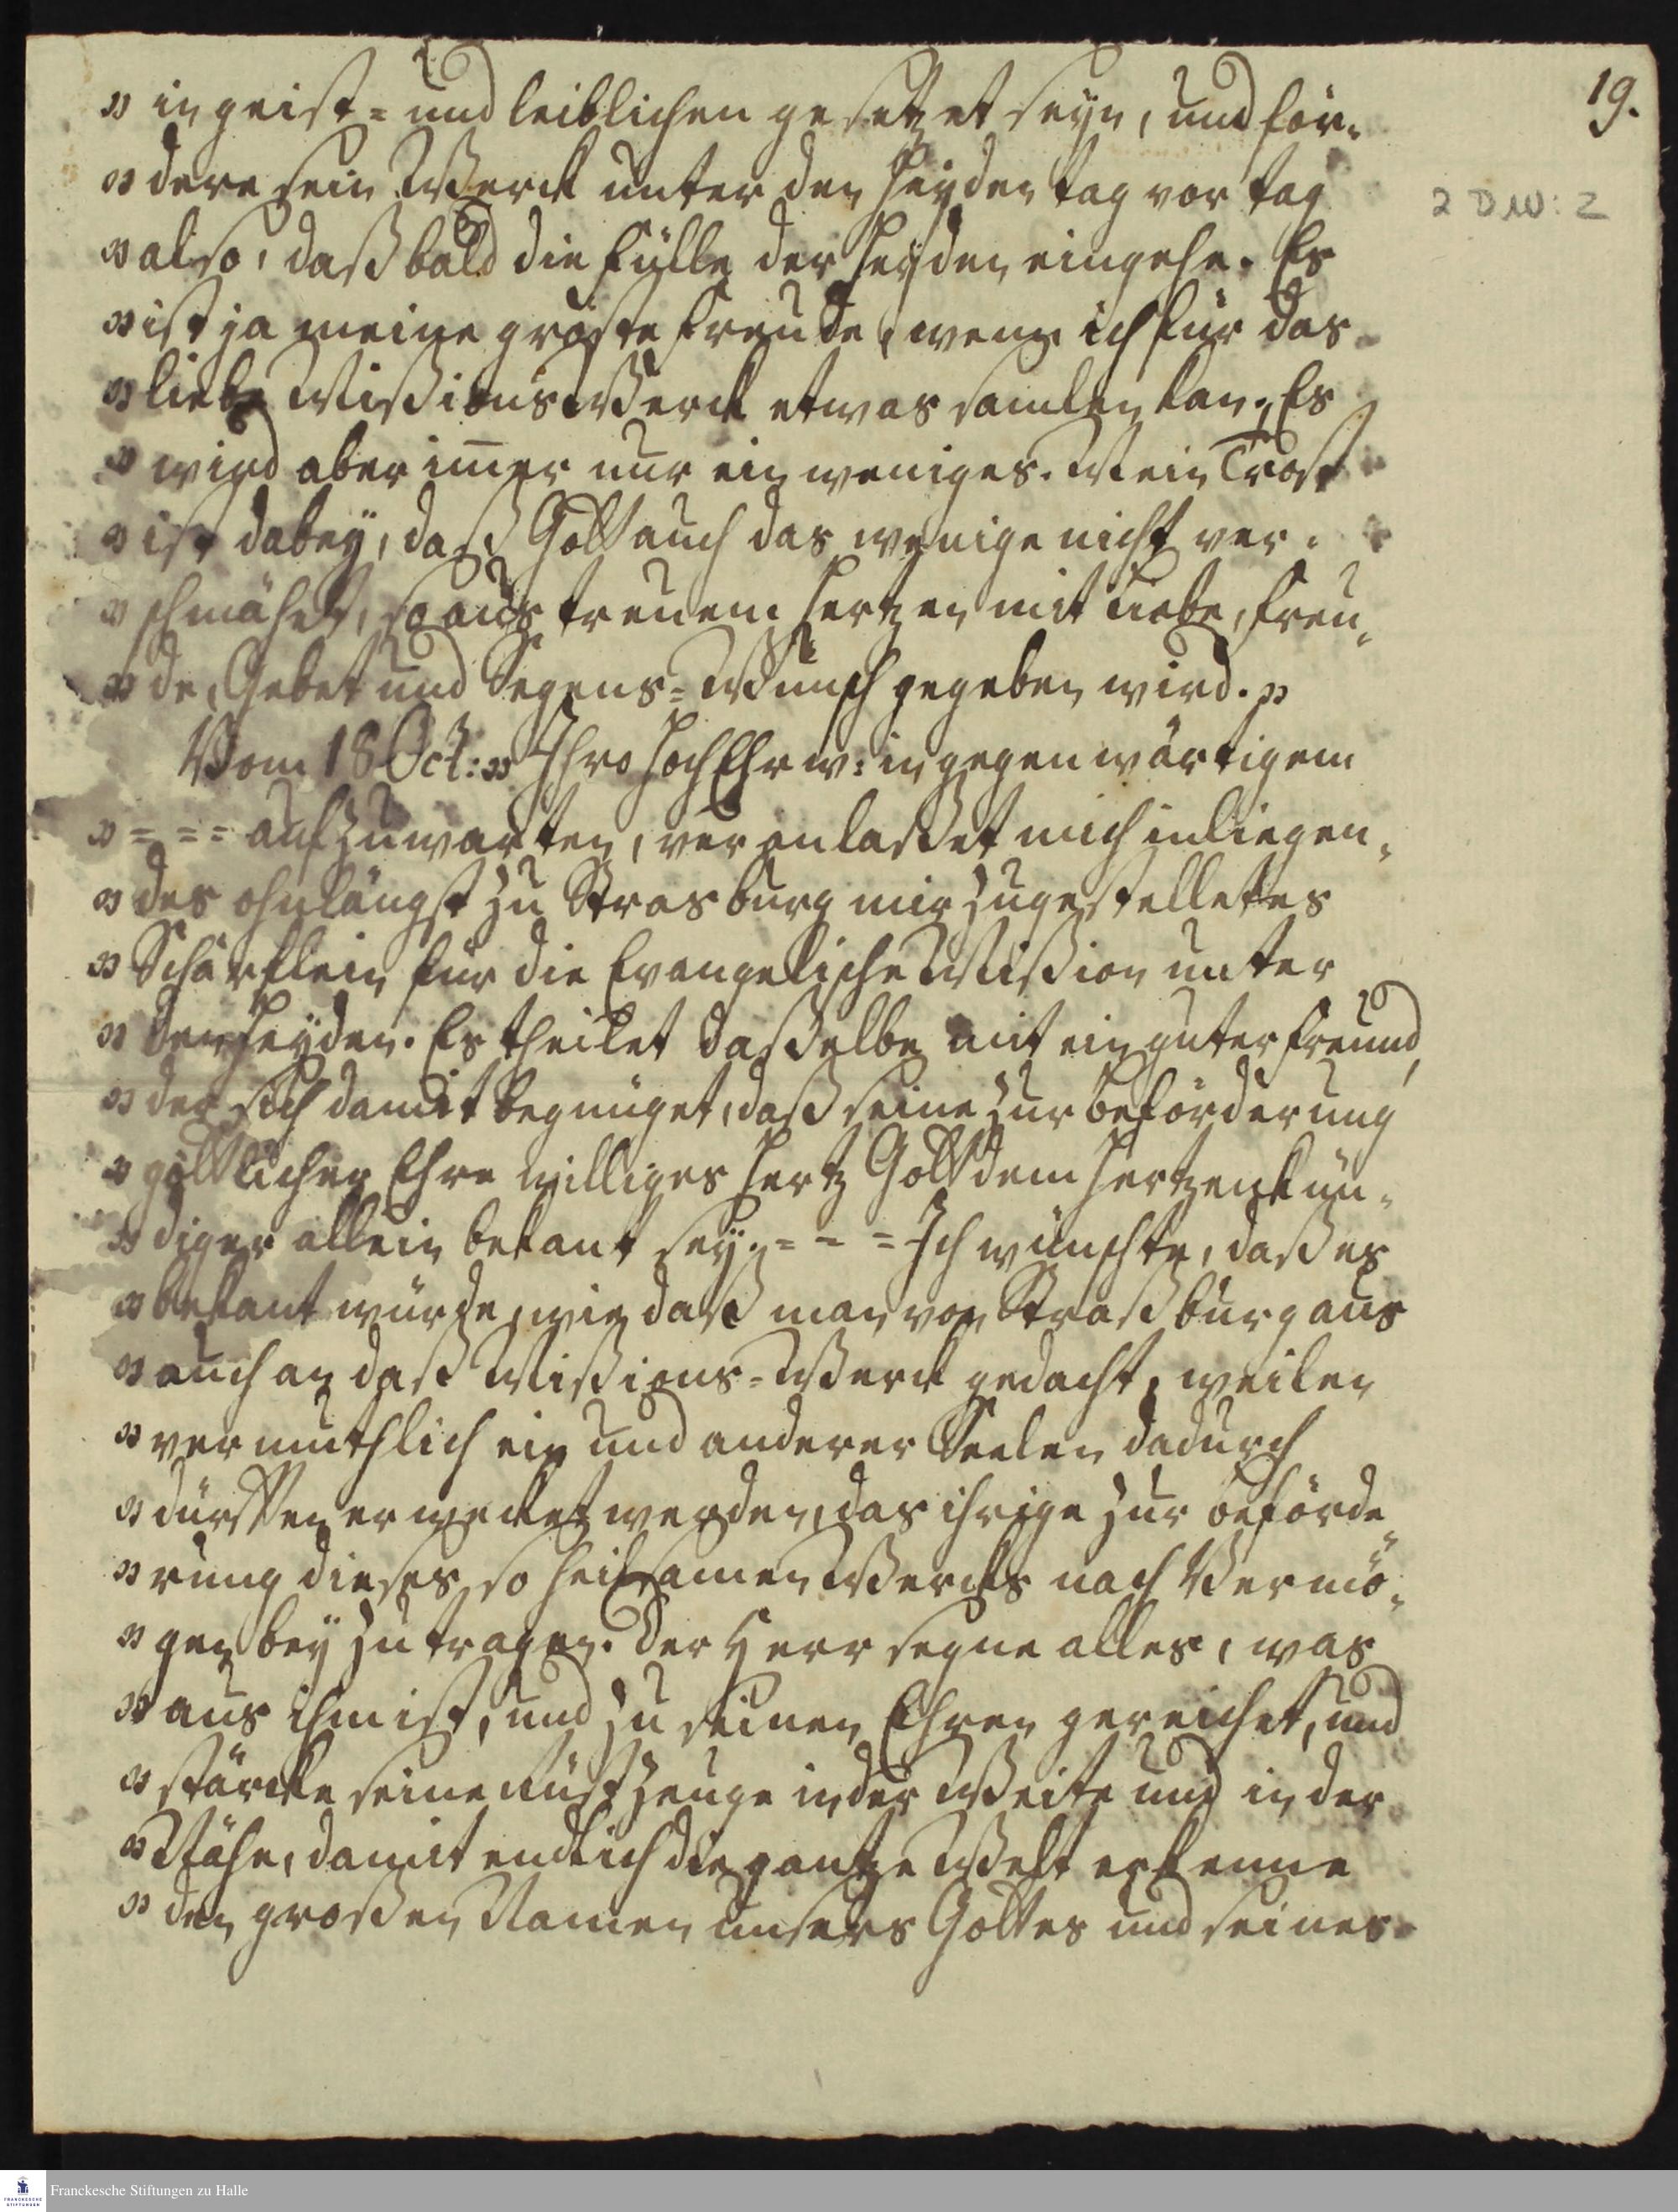 19.
2 DW: 2
" in geist= und leiblichen gesetzet seyn, und för-
" dere sein Werck unter den Heyden tag vor tag
" also, daß bald die Fülle der Heyden eingehe. Es
" ist ja meine gröste Freude, wenn ich für das
" liebe Mißions Werck etwas samlen kan. Es
" wird aber im̅er nur ein weniges. Mein Trost
" ist dabey, daß Gott auch das wenige nicht ver-
" schmähet, so aus treuem Hertzen mit Liebe, Freu-
" de, Gebet und Segens=Wunsch gegeben wird. "
Vom 18 Oct: " Ihro HochEhrw: in gegenwärtigem
" = = = aufzuwarten, veranlaßet mich inliegen-
" des ohnlängst zu Strasburg mir zugestelletes
" Schärflein für die Evangelische Mißion unter
" den Heyden. Es theilet daßelbe mit ein guter Freund,
" der sich damit begnüget, daß seine zur Beförderung
" göttlicher Ehre williges Hertz Gott dem Hertzenkün-
" diger allein bekant sey. = = = Ich wünschte, daß es
" bekant würde, wie daß man von Straßburg aus
" auch an daß Mißions=Werck gedacht, weilen
" vermuthlich ein und anderer Seelen dadurch
" dürfften erwecket werden, das ihrige zur Beförde-
" rung dieses so heilsamen Wercks nach Vermö-
" gen bey zu tragen. Der Herr segne alles, was
" aus ihm ist, und zu seinen Ehren gereichet, und
" stärcke seine Rüstzeuge in der Weite und in der
" Nähe, damit endlich die gantze Welt erkenne
" den großen Namen unsers Gottes und seines
Franckesche Stiftungen zu Halle
FRANCKESCHE
STIFTUNGEN